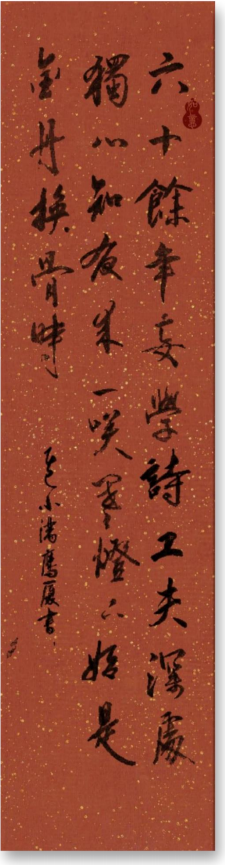 六十餘年妄學詩工夫深處
獨心知夜來一咲寒燈下始是
金丹換骨時
小滿 廈書